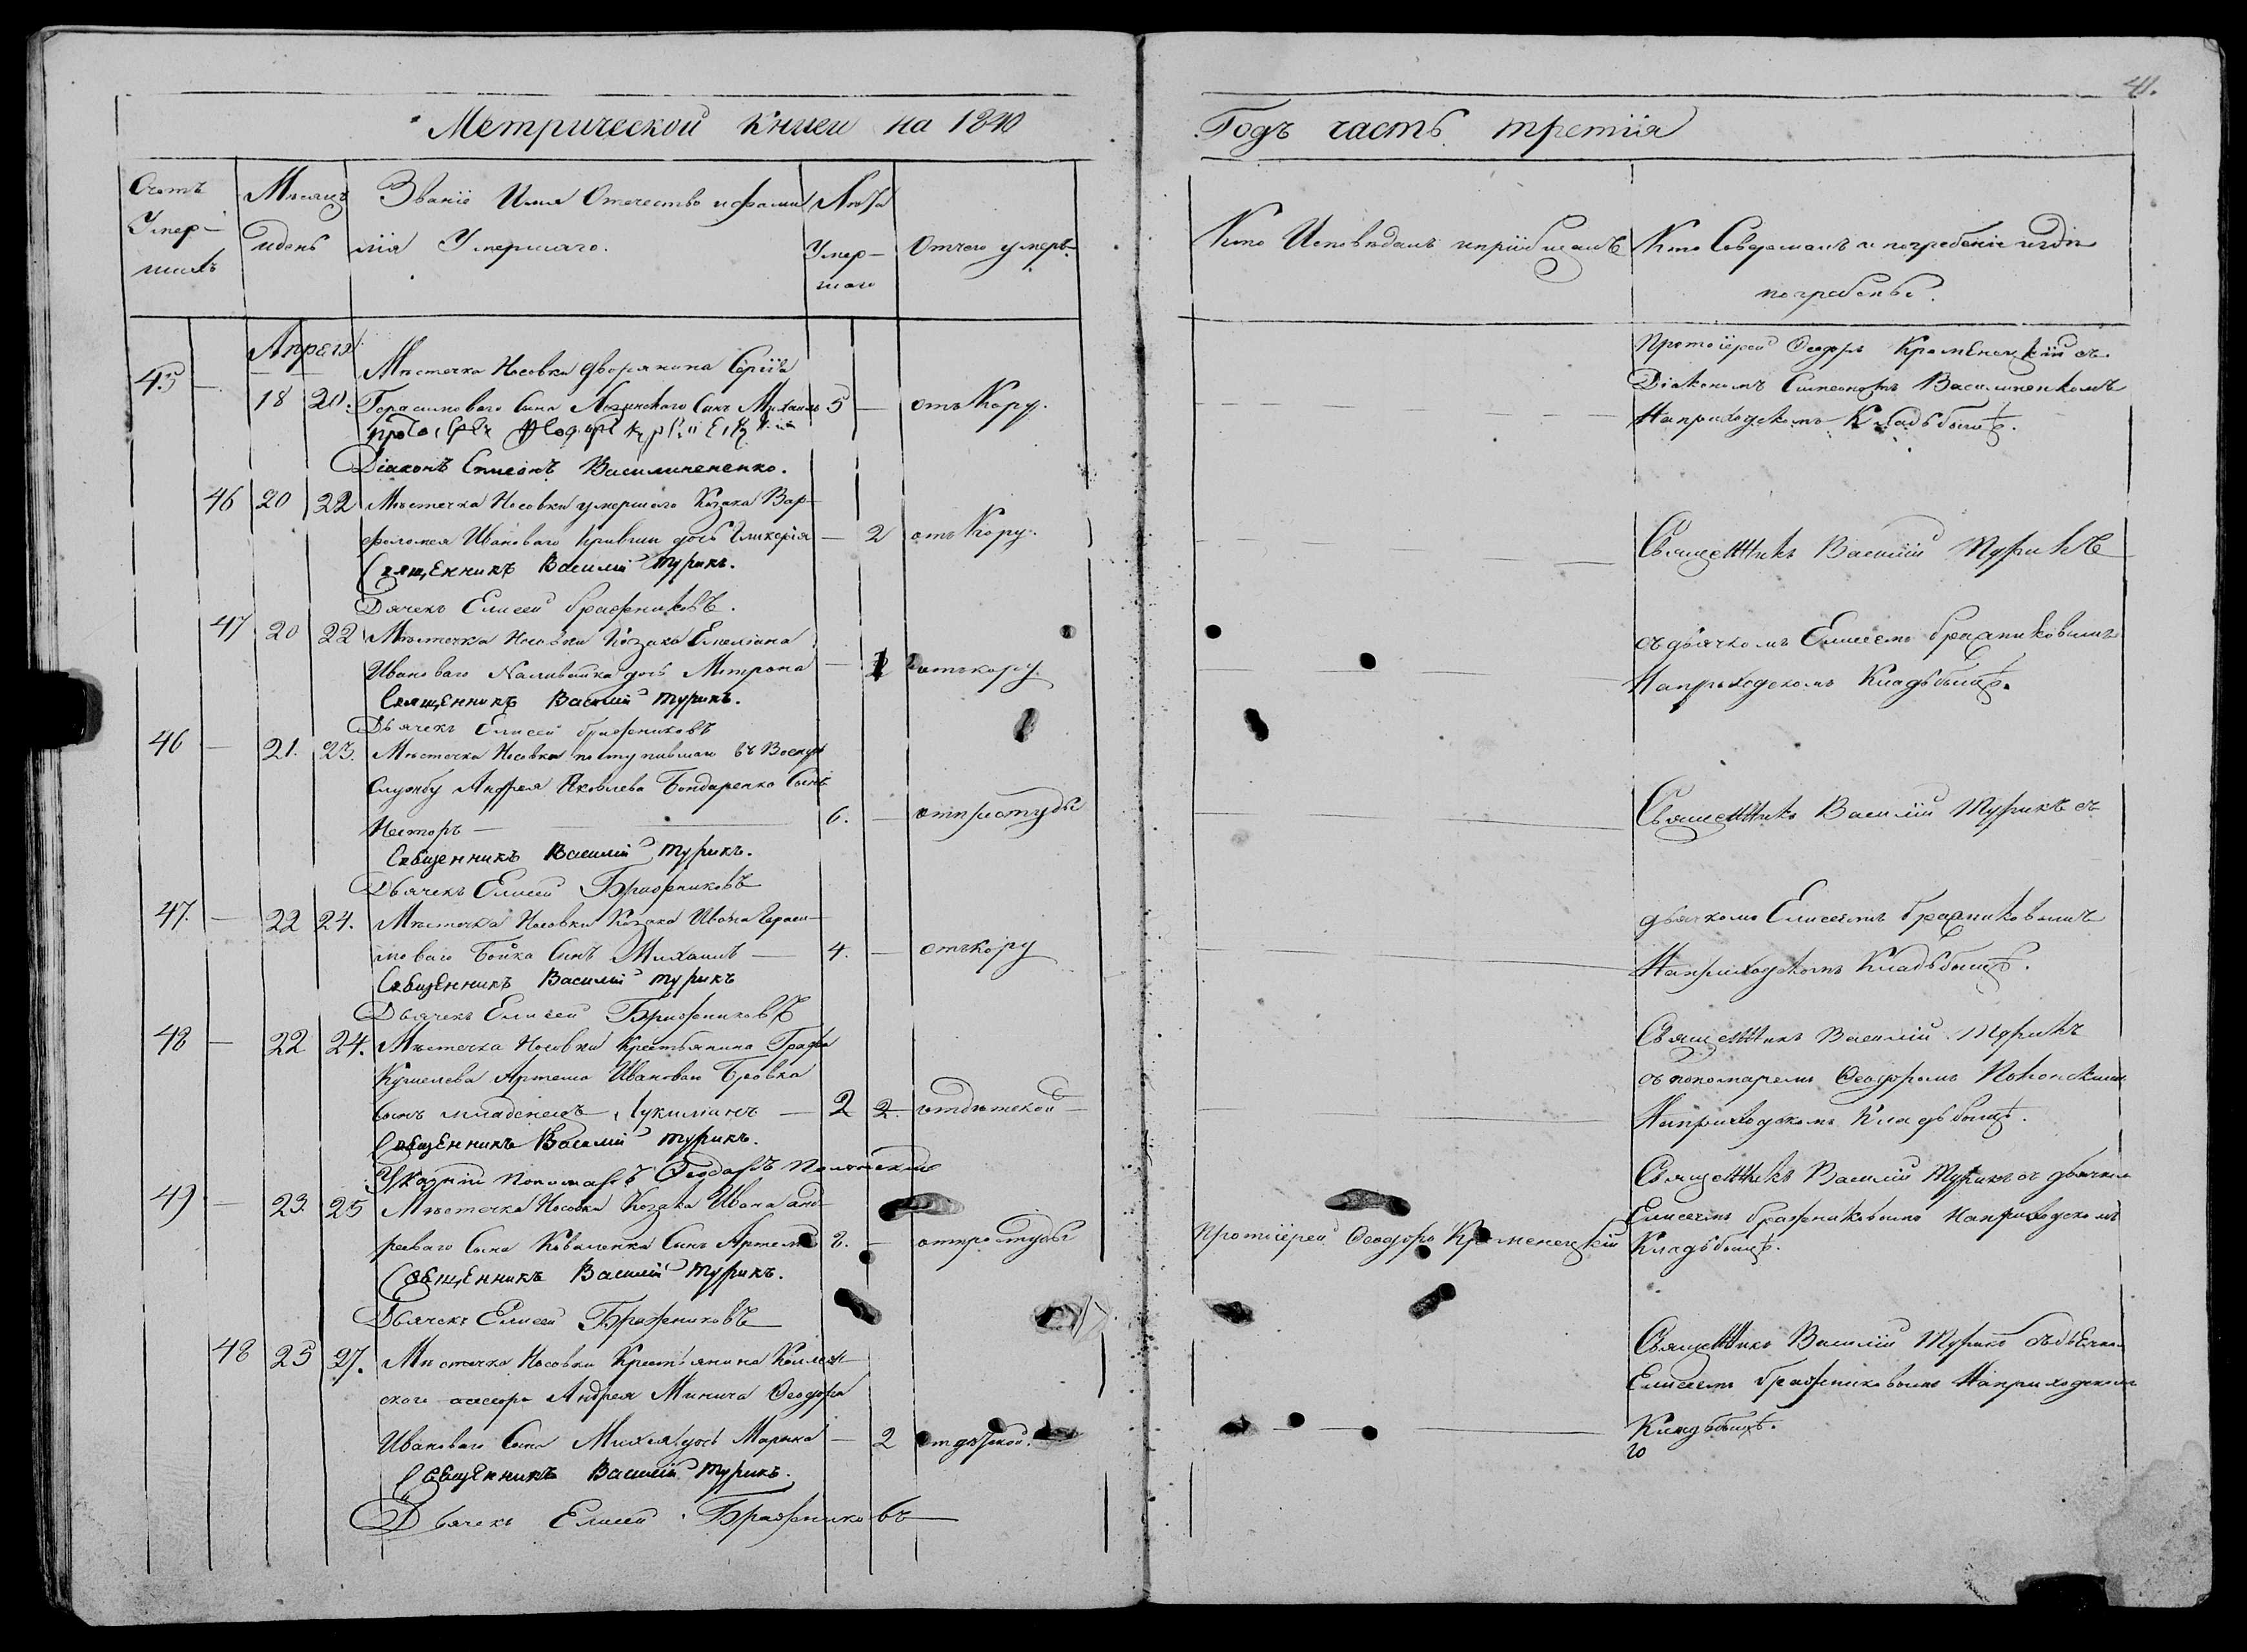 41.
Метрической книги на 1840
Годъ часть третїя
Счетъ Умер-шихъ
Мѣсяцъ и день
Званіе Имя Отечество и фамилія Умершаго.
Лѣта Умер-шаго
Отчего умеръ.
Кто Исповѣдалъ и пріобщалъ
Кто Совершалъ погребеніе и гдѣ погребены.
Апреля
45 — 18 20. Мѣстечка Носовки дворянина Сергія
Герасимоваго Сына Сынъ Михаилъ 5 — отъ Кору.
Діаконъ Симеонъ Василиненко.
Протоіерей Ѳеодоръ Кременецкій съ
Діакономъ Симеономъ Василиненкомъ
На приходскомъ Кладьбыщѣ.
46 20 22 Мѣстечка Носовки умершаго Козака Вар-
фоломея Иванова дочь Гликерія — 2 отъ Кору.
Священникъ Василій Турикъ.
Дячекъ Елисей Бражниковъ.
Священникъ Василій Турикъ
47 20 22 Мѣстечка Носовки Козака Емеліана
Ивановаго Наливайка дочь Матрона — отъ кору.
Священникъ Василій Турикъ.
Дьячекъ Елисей Бражниковъ
съ дьячкомъ Елисеемъ Бражниковымъ
На приходскомъ Кладьбыщѣ.
46 — 21. 23. Мѣстечка Носовки поступившаго въ Военную
Службу Андрея Яковлева Бондаренко Сынъ
Несторъ — 6. — отпростуды
Священникъ Василій Турикъ.
Дьячекъ Елисей Бражниковъ
Священникъ Василій Турикъ съ
47. — 22 24. Мѣстечка Носовки Козака Ивана Гераси-
моваго Бойка Сынъ Михаилъ — 4. — отъ кору
Священникъ Василій Турикъ
Дьячекъ Елисей Бражниковъ
дьячкомъ Елисеемъ Бражниковымъ
На приходскомъ Кладьбыщѣ.
48 — 22 24. Мѣстечка Носовки Крестьянина Графа
Кушелева Артема Ивановаго Бровка
сынъ младенецъ — 2 2. отдѣтской
Священникъ Василій Турикъ.
Пономарь Ѳеодоръ
Священникъ Василій Турикъ
съ пономаремъ Ѳеодоромъ
На приходскомъ Кладьбыщѣ.
49 — 23. 25 Мѣстечка Носовки Козака Ивана Анд-
реева Сына Коваленка Сынъ Артемъ 2. — отпростуды
Священникъ Василій Турикъ.
Дьячекъ Елисей Бражниковъ
Протіерей Ѳеодоръ Кременецкій
Священникъ Василій Турикъ съ дьячкомъ
Елисеемъ Бражниковымъ На приходскомъ
Кладьбыщѣ.
48 25 27. Мѣстечка Носовки Крестьянина Коллеж-
скаго ассесора Андрея Минича Ѳеодора
Ивановаго Сына дочь Марина — 2 отдѣтской.
Священникъ Василій Турикъ.
Дьячекъ Елисей Бражниковъ
Священникъ Василій Турикъ
Елисеемъ Бражниковымъ На приходскомъ
Кладьбыщѣ.